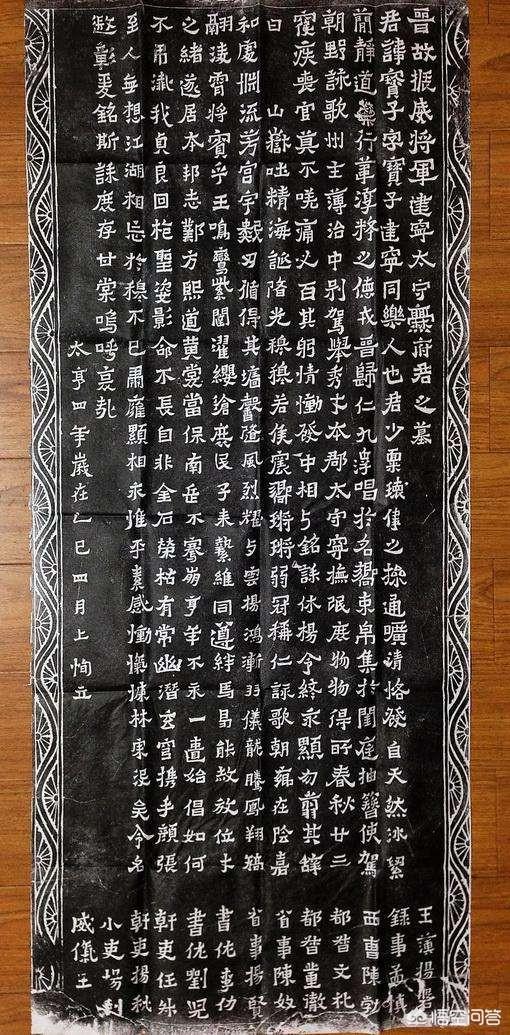 晉故振威將軍建寧太守爨府君之墓
君諱寶子字寶子建寧同樂人也君少稟瓌偉之操通曠清恪發自天然冰絜
簡靜道兼行葦淳粹之德戎晉歸仁九皋唱於名嚮束帛集於閨庭抽簪俟駕
朝野詠歌州主薄治中別駕舉秀才本郡太守寧撫氓庶物物得所春秋廿三
寢疾喪官莫不嗟痛人百其躬情慟發中相与銘誄休揚令終永顯勿翦其辭
曰 山嶽吐精海誕降光穆穆君侯震嚮鏘鏘弱冠稱仁詠歌朝鄉在陰嘉
和處淵流芳宮宇數仞循得其墉馨隆風烈耀与雲揚鴻漸羽儀龍騰鳳翔矯
翮淩霄將賓乎王鳴鸞紫闥濯纓滄浪庶民子来縶維同遵絆馬曷能赦放位才
之緒遂居本邦志鄴方熙道黃裳當保南岳不騫崩享年不永一匱始倡如何
不弔殲我貞良回抱聖姿影命不長自非金石榮枯有常幽潛玄穹携手顏張
至人無想江湖相忘於穆不已肅雍顯相永惟平素感慟愾慷林宗沒矣令名
遐彰爰銘斯誄庶存甘棠嗚呼哀哉
太亨四年歲在乙巳四月上恂立
王演揚磐
錄事孟慎
西曹陳勃
都督文礼
都督董徹
省事陳奴
省事揚賢
書佐李仂
書佐劉兒
幹吏任升
幹吏揚秋
小吏揚利
威儀王
悟空问答